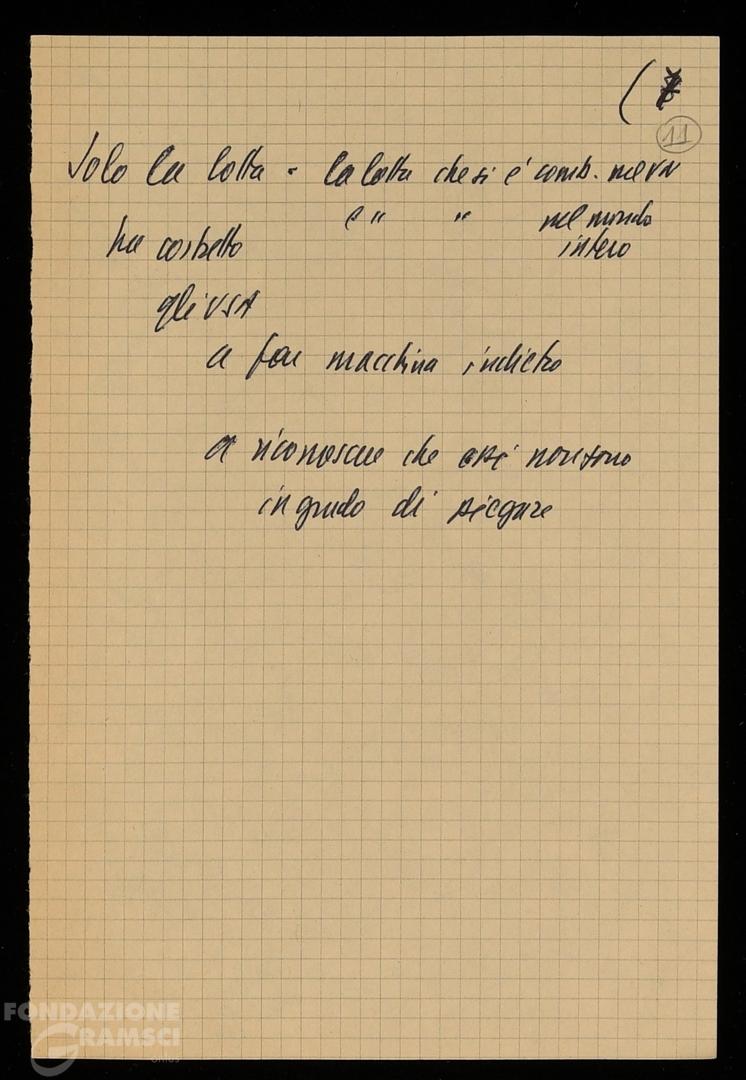 11
Solo la lotta - la lotta che si è comb. nel VN
e " " nel mondo
ha costretto intero
gli USA
a far macchina indietro
a riconoscere che essi non sono
in grado di piegare
FONDAZIONE
GRAMSCI
onlus